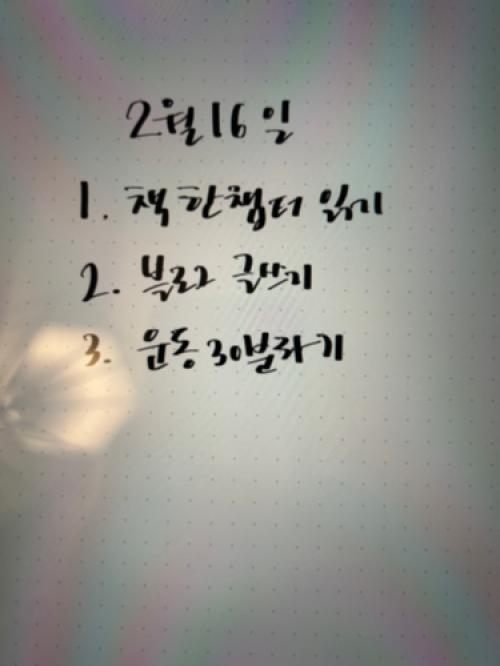 2월 16일
1. 책 한챕터 읽기
2. 블로그 글쓰기
3. 운동 30분하기